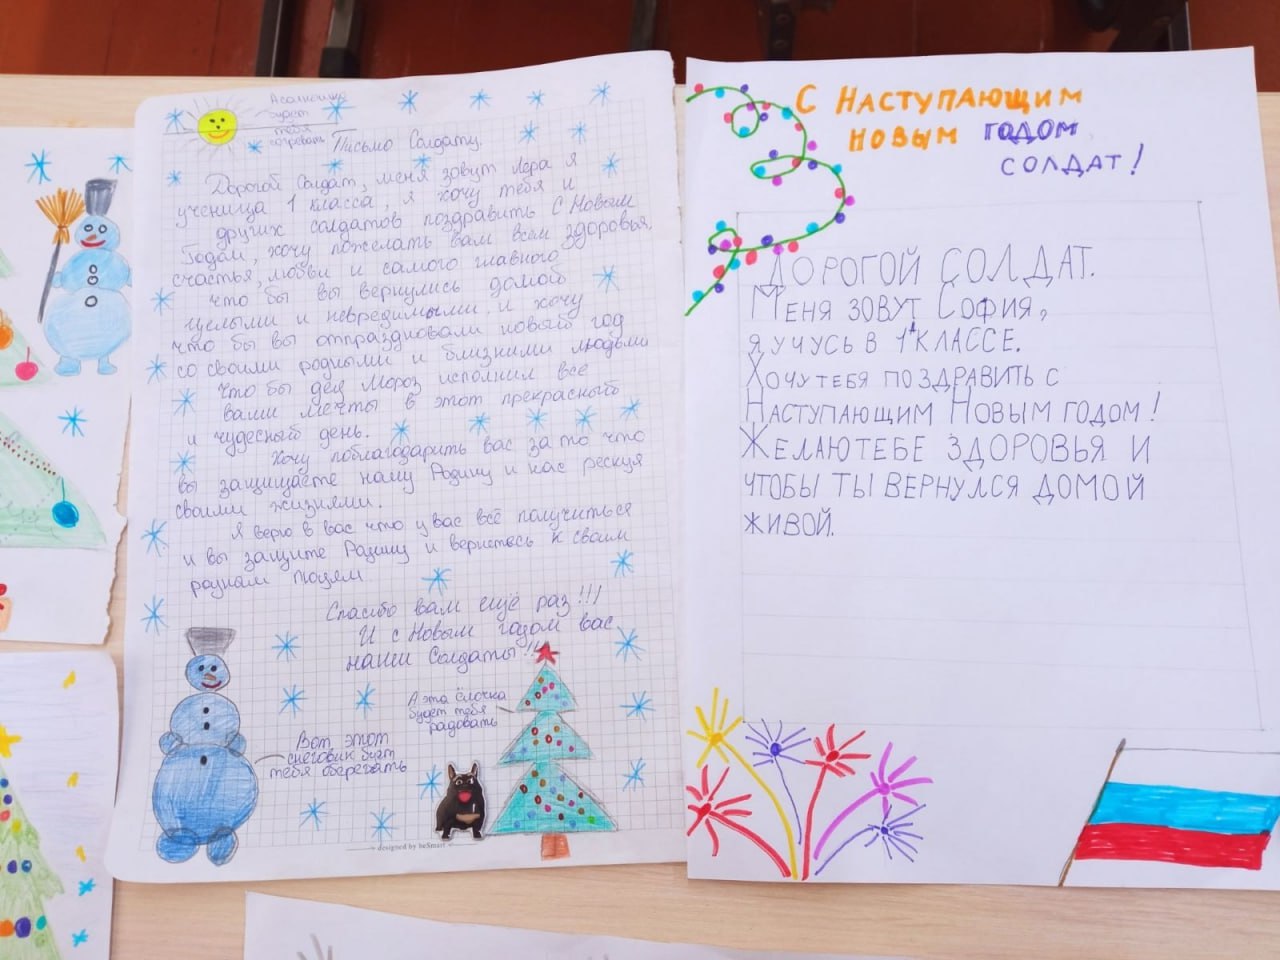 А солнышко
будет
тебя
согревать
Письмо Солдату.
Дорогой Солдат, меня зовут Лера я
ученица 1 класса, я хочу тебя и
других солдатов поздравить С Новым
Годом, хочу пожелать вам всем здоровья,
счастья, любви и самого главного
что бы вы вернулись домой
целыми и невредимыми, и хочу
что бы вы отпраздновали новый год
со своими родными и близкими людьми
что бы дед Мороз исполнил все
ваши мечты в этот прекрасный
и чудесный день.
Хочу поблагодарить вас за то что
вы защищаете нашу Родину и нас рескуя
своими жизнями.
Я верю в вас что у вас всё получиться
и вы защите Родину и вернетесь к своим
родным людям
Спасибо вам ещё раз!!!
И с Новым годом вас
наши Солдаты!!!
А эта ёлочка
будет тебя
радовать
Вот этот
снеговик будет
тебя оберегать
designed by beSmart
С НАСТУПАЮЩИМ
НОВЫМ ГОДОМ
СОЛДАТ!
ДОРОГОЙ СОЛДАТ.
МЕНЯ ЗОВУТ СОФИЯ,
Я УЧУСЬ В 1А КЛАССЕ.
ХОЧУ ТЕБЯ ПОЗДРАВИТЬ С
НАСТУПАЮЩИМ НОВЫМ ГОДОМ!
ЖЕЛАЮ ТЕБЕ ЗДОРОВЬЯ И
ЧТОБЫ ТЫ ВЕРНУЛСЯ ДОМОЙ
ЖИВОЙ.